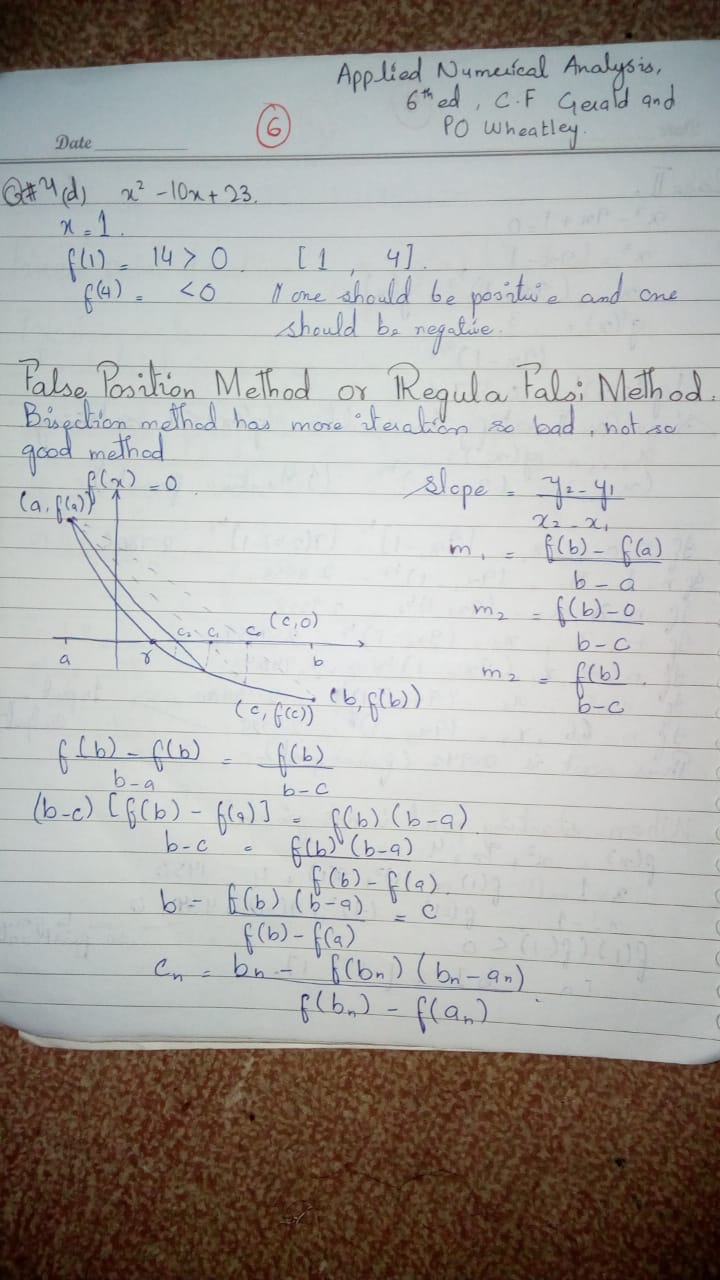 Applied Numerical Analysis,
6th ed, C.F Gerald and
PO Wheatley.
6
Date
Q#4(d) x² - 10x + 23.
x = 1.
f(1) = 14 > 0 [1 , 4].
f(4) = < 0 // one should be positive and one
should be negative.
False Position Method or Regula Falsi Method.
Bisection method has more iteration so bad, not so
good method
f(x) = 0
(a, f(a))
slope = y₂ - y₁
x₂ - x₁
m₁ = f(b) - f(a)
b - a
m₂ = f(b) - 0
b - c
m₂ = f(b)
b - c
(c, 0)
c₂ c₁ c₀
a r b
(c, f(c)) (b, f(b))
f(b) - f(b) = f(b)
b - a b - c
(b-c) [f(b) - f(a)] = f(b) (b-a)
b-c = f(b) (b-a)
f(b) - f(a)
b - f(b) (b-a) = c
f(b) - f(a)
cn = bn - f(bn) (bn - an)
f(bn) - f(an)